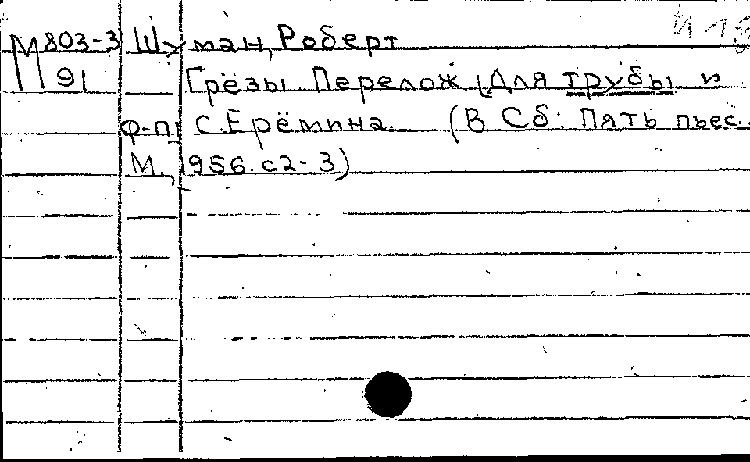 М803-3 Шуман, Роберт
91 Грёзы. Перелож. для трубы и
ф-п. С. Ерёмина. (В сб. Пять пьес.
М., 1956. с 2-3)